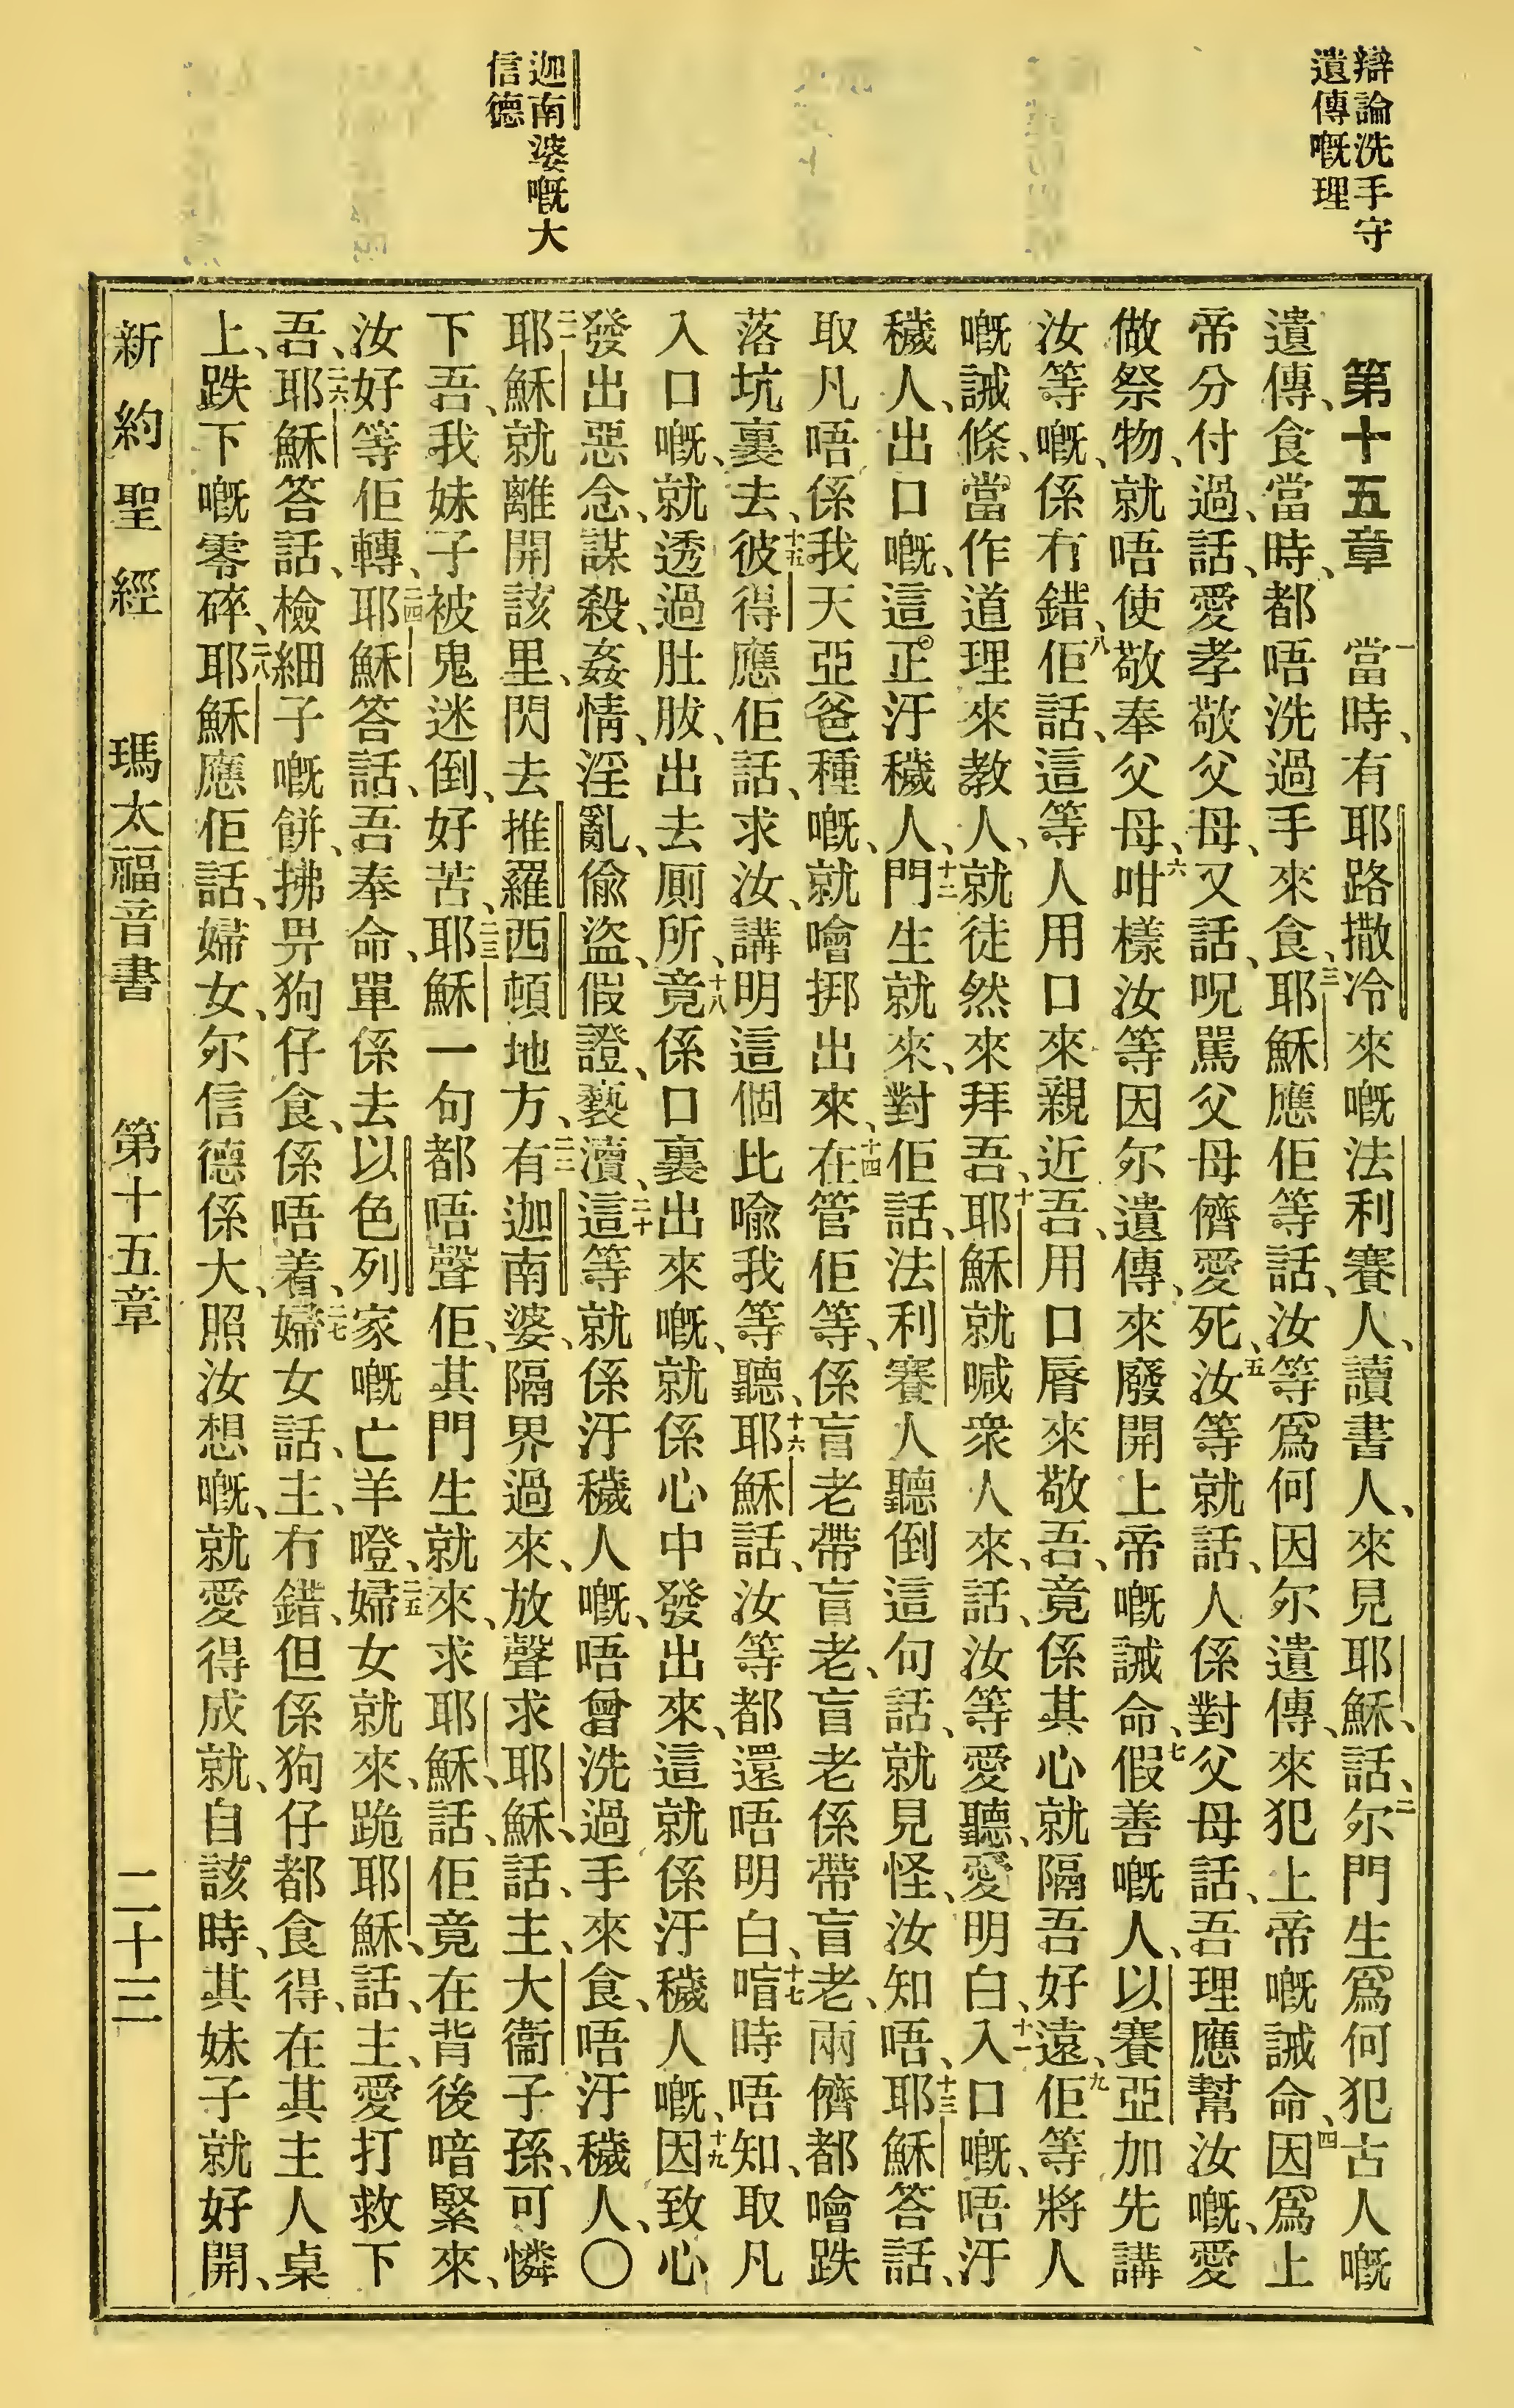 辯論洗手守
遺傳嘅理
迦南婆嘅大
信德
第十五章 一當時、有耶路撒冷來嘅法利賽人、讀書人、來見耶穌、話、二尔門生爲何犯古人嘅
遺傳、食當時、都唔洗過手來食、三耶穌應佢等話、汝等爲何因尔遺傳、來犯上帝嘅誡命、四因爲上
帝分付過、話、愛孝敬父母、又話、呪駡父母儕愛死、五汝等就話、人係對父母話、吾理應幫汝嘅、愛
做祭物、就唔使敬奉父母、六咁樣汝等因尔遺傳、來廢開上帝嘅誡命、七假善嘅人、以賽亞加先講
汝等嘅、係冇錯、八佢話、這等人用口來親近吾、用口脣來敬吾、竟係其心就隔吾好遠、九佢等將人
嘅誡條、當作道理來教人、就徒然來拜吾、十耶穌就喊衆人來、話、汝等愛聽、愛明白、十一入口嘅、唔汙
穢人、出口嘅、這正汙穢人、十二門生就來、對佢話、法利賽人聽倒這句話、就見怪、汝知唔、十三耶穌答話、
取凡唔係我天亞爸種嘅、就噲挷出來、十四在管佢等、係盲老帶盲老、盲老係帶盲老、兩儕都噲跌
落坑裏去、十五彼得應佢話、求汝、講明這個比喻我等聽、十六耶穌話、汝等都還唔明白、十七喑時唔知、取凡
入口嘅、就透過肚胈、出去厠所、十八竟係口裏出來嘅、就係心中發出來、這就係汙穢人嘅、十九因致心
發出惡念、謀殺、姦情、淫亂、偷盜、假證、褻瀆、二十這等就係汙穢人嘅、唔曾洗過手來食、唔汙穢人、〇
二一耶穌就離開該里、閃去推羅西頓地方、二二有迦南婆、隔界過來、放聲求耶穌、話、主、大衞子孫、可憐
下吾、我妹子被鬼迷倒、好苦、二三耶穌一句都唔聲佢、其門生就來、求耶穌、話、佢竟在背後喑緊來、
汝好等佢轉、二四耶穌答話、吾奉命、單係去以色列家嘅亡羊嚈、二五婦女就來、跪耶穌、話、主、愛打救下
吾、二六耶穌答話、檢細子嘅餅、拂畀狗仔食、係唔着、二七婦女話、主、冇錯、但係狗仔都食得、在其主人桌
上、跌下嘅零碎、二八耶穌應佢話、婦女、尔信德係大、照汝想嘅、就愛得成就、自該時、其妹子就好開、
新約聖經 瑪太福音書 第十五章 二十三